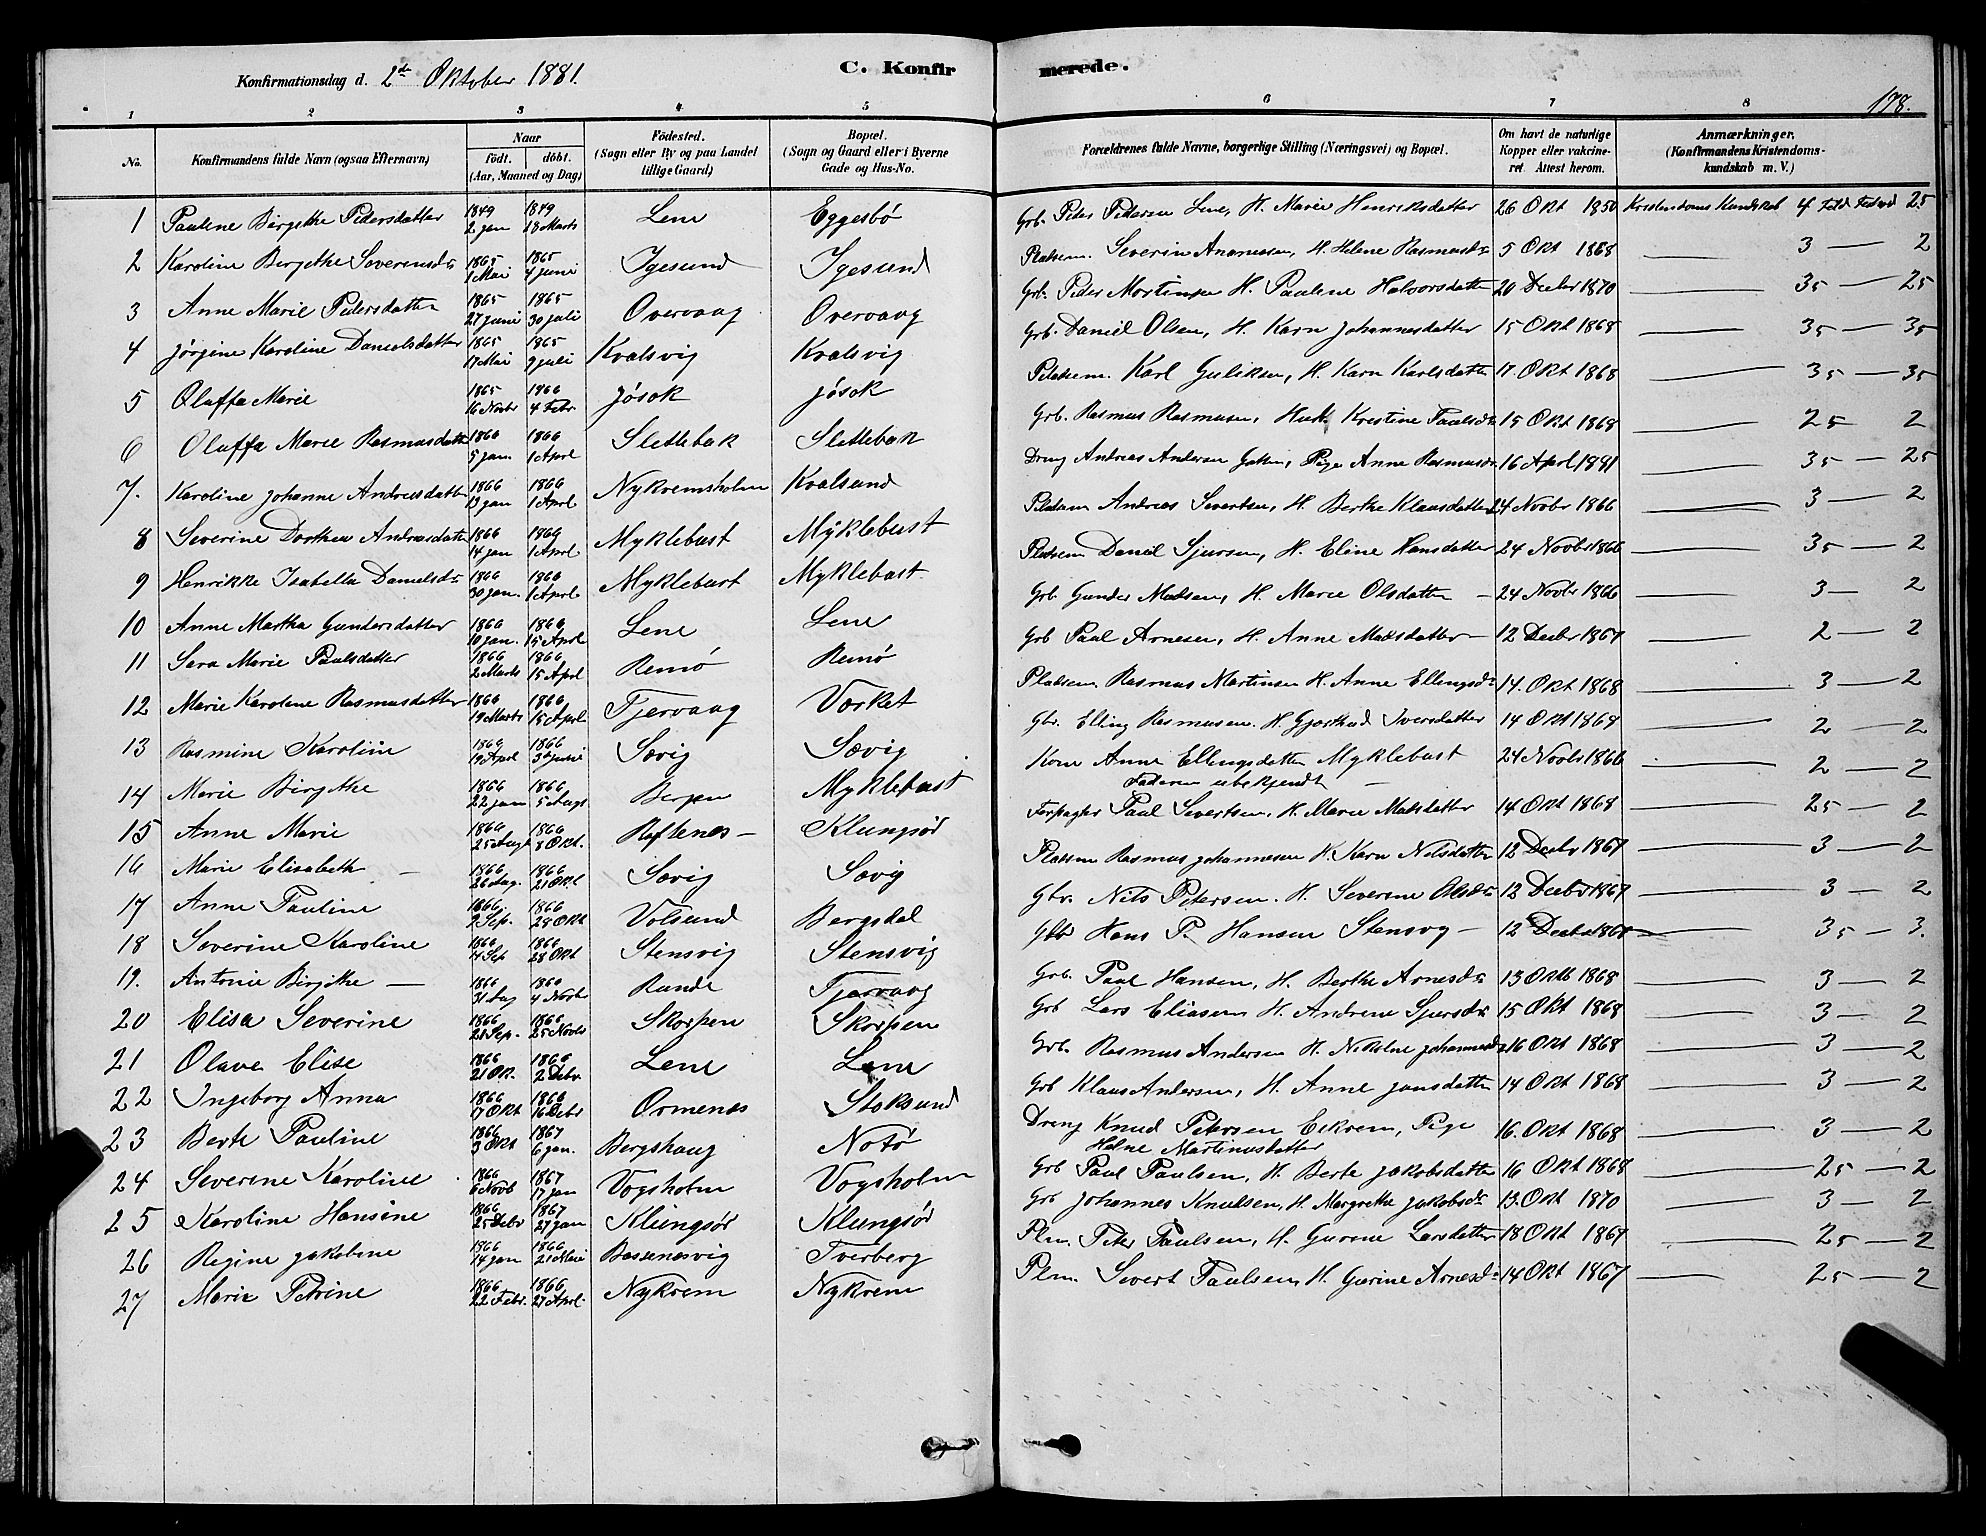 Konfirmationsdag d. 2de Oktober 1881.
C. Konfirmerede.
178.
1 2 3 4 5 6 7 8
No.
Konfirmandens fulde Navn (ogsaa Efternavn)
Naar
født. døbt.
(Aar, Maaned og Dag)
Fødested.
(Sogn eller By og paa Landet tillige Gaard)
Bopæl.
(Sogn og Gaard eller i Byerne Gade og Hus-No.
Forældrenes fulde Navne, borgerlige Stilling (Næringsvei) og Bopæl.
Om havt de naturlige Kopper eller vakcineret. Attest herom.
Anmærkninger.
(Konfirmandens Kristendomskundskab m. V.)
1 Pauline Birgithe Pedersdatter 1849 2 jan 1849 18 Marts Lene Eggesbø Grb. Peder Pedersen Lene, H. Marie Henriksdatter 26 Okt 1850 Kristendoms Kundskab 4 25
2 Karoline Bergithe 1865 1 Mai 1865 4 juni Igesund Igesund Pladsem. Severin H. Helene Rasmusd 5 Okt 1868 3 — 2
3 Anne Marie Pedersdatter 1865 27 juni 1865 30 juli Overvaag Overvaag Grb. Peder Martinsen H. Pauline Halvorsdatter 20 Decbr 1870 35 — 25
4 Jørgine Karoline Danielsdatter 1865 17 Mai 1865 9 juli Kvalsvig Kvalsvig Grb. Daniel Olsen, H. Karn Johannesdatter 15 Okt 1868 35 — 35
5 Oluffa Marie 1865 16 Novbr 1866 4 Febr jøsok jøsok Pladsem. Karl Guliksen, H. Karn Karlsdatter 17 Okt 1868 35 — 35
6 Oluffa Marie Rasmusdatter 1866 5 jan. 1866 1 Aprl Slettebak Slettebak Grb. Rasmus Rasmusen, Hust. Kristine Paulsd 15 Okt 1868 25 2
7. Karoline Johanne Andreasdatter 1866 13 jan 1866 1 Aprl Nykremsholm Kvalsund Dreng Andreas Andersen Pige Anne Rasmusd 16 Aprl 1881 35 — 25
8 Severine Dorthea Andreasdatter 1866 14 jan 1866 1 Aprl Myklebust Myklebust Andreas Severtsen, H. Berthe Klausdatter 24 Novbr 1866 3 — 2
9 Henrikke Isabella Danielsd 1866 30 jan. 1866 1 Aprl Myklebust Myklebust Pladsem Daniel Sjursen, H. Eline Hansdatter 24 Novbr 1866 35 — 2
10 Anne Martha Gundersdatter 1866 10 jan. 1866 15 Aprl Lene Lene Grb Gunder Madsen, H. Marie Olsdatter — 24 Novbr 1866 3 — 2
11 Sara Marie Paulsdatter 1866 2 Marts 1866 15 Aprl Remø Remø Grb Paul Arnesen, H. Anne Matsdatter — 12 Decbr 1867 2 — 2
12 Marie Karolene Rasmusdatter 1866 19 Marts 1866 15 Aprl Tjervaag Vorket Pladsem. Rasmus Martinsen H. Anne Ellingsd 14. Okt 1868 3 — 2
13 Rasmine Karoline 1866 19 Aprl 1866 3 juni Sævig Sævig Gbr. Elling Rasmusen. H. Gjertrud Iversdatter 14 Okt 1868 2 — 2
14 Marie Birgithe 1866 22 jan 1866 5 Augt Bergen Myklebust Kone Anne Ellingsdatter Myklebust 24 Novbr 1866 2 — 2
Faderen ubekjendt —
15 Anne Marie 1866 25 Augt 1866 8 Okt. Raftenes — Klungsør Forpagter Paul Severtsen, H. Marie Matsdatter 14 Okt 1868 25 — 2
16 Marie Elisabeth — 1866 26 Aug. 1866 21 Okt Sævig Sævig Pladsem Rasmus Johannesen H. Karn Nilsdatter 12 Decbr 1867 3 — 2
17 Anne Pauline 1866. 9 Sep. 1866 28 Okt Volsund Bergsdal Gbr. Nils Petersen. H. Severine 12 Decbr 1867 3 — 2
18 Severine Karoline 1866 4 Sep 1866 28 Okt Stensvig Stensvig Gbr Hans P. Hansen Stensvg — 12 Decbr 35 — 3.
19. Antonie Birgithe — 1866 31 Aug 1866 4 Novbr Runde Tjervaag Grb. Paul Hansen, H. Berthe Arnesd 13 Oktb 1868 3 — 2
20 Elisa Severine 1866 Sep. 1866 25 Novbr Skorpen Skorpen Grb Lars Eliasen H. Andrine Sjursd 15 Okt 1868 3 — 2
21 Olave Elise 1866 21 Ok. 1866 2 Debr Lene Lene Grb. Rasmus Andersen H. Nikoline Johannesd 16 Okt 1868 3 — 2
22 Ingeborg Anna 1866 17 Okt 1866 16 Debr Ormenes Stoksund Grb Klaus Andersen, H. Anne Jansdatter 14 Okt 1868 3 — 2
23 Berte Pauline 1866 3 Okt 1867 6 jan. Bergshaug Notø Dreng Knud Petersen Eikrem, Pige 16. Okt 1868 3 — 2
Helene Martinusdatter
24 Severine Karoline 1866 6 Novb 1867 17 jan Vogsholm Vogsholm Grb Paul Paulsen, H. Berte Jakobsdatter 16 Okt 1868 25 — 2
25 Karoline Hansine 1866 25 Debr 1867 27 jan Klungsør Klungsør Grb Johannes Knutsen, H. Margrethe Jakobsd 13. Okt 1870 3 — 2
26 Regine Jakobine 1866 14 jan 1866 21 Mai Bassenesvig Tverberg Plm. Peter Paulsen, H. Gurine Larsdatter 18 Okt 1867 25 — 2
27 Marie Petrine 1866 22 Febr. 1866 27 Aprl. Nykrem Nykrem Plm. Severt Paulsen, H. Gurine Arnesd 14 Okt 1867 25 — 2